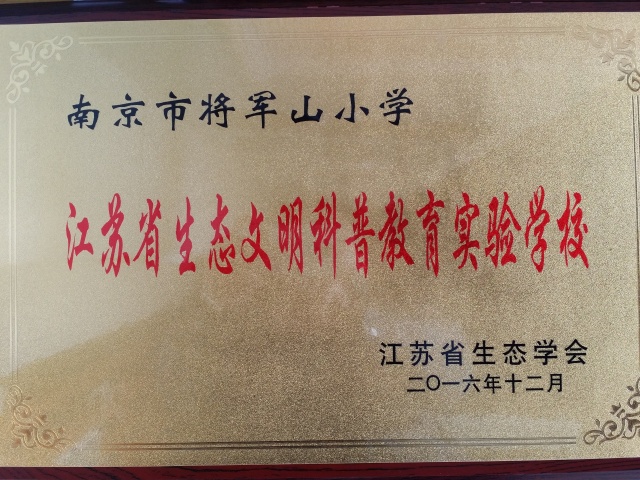 南京市将军山小学
江苏省生态文明科普教育实验学校
江苏省生态学会
二〇一六年十二月